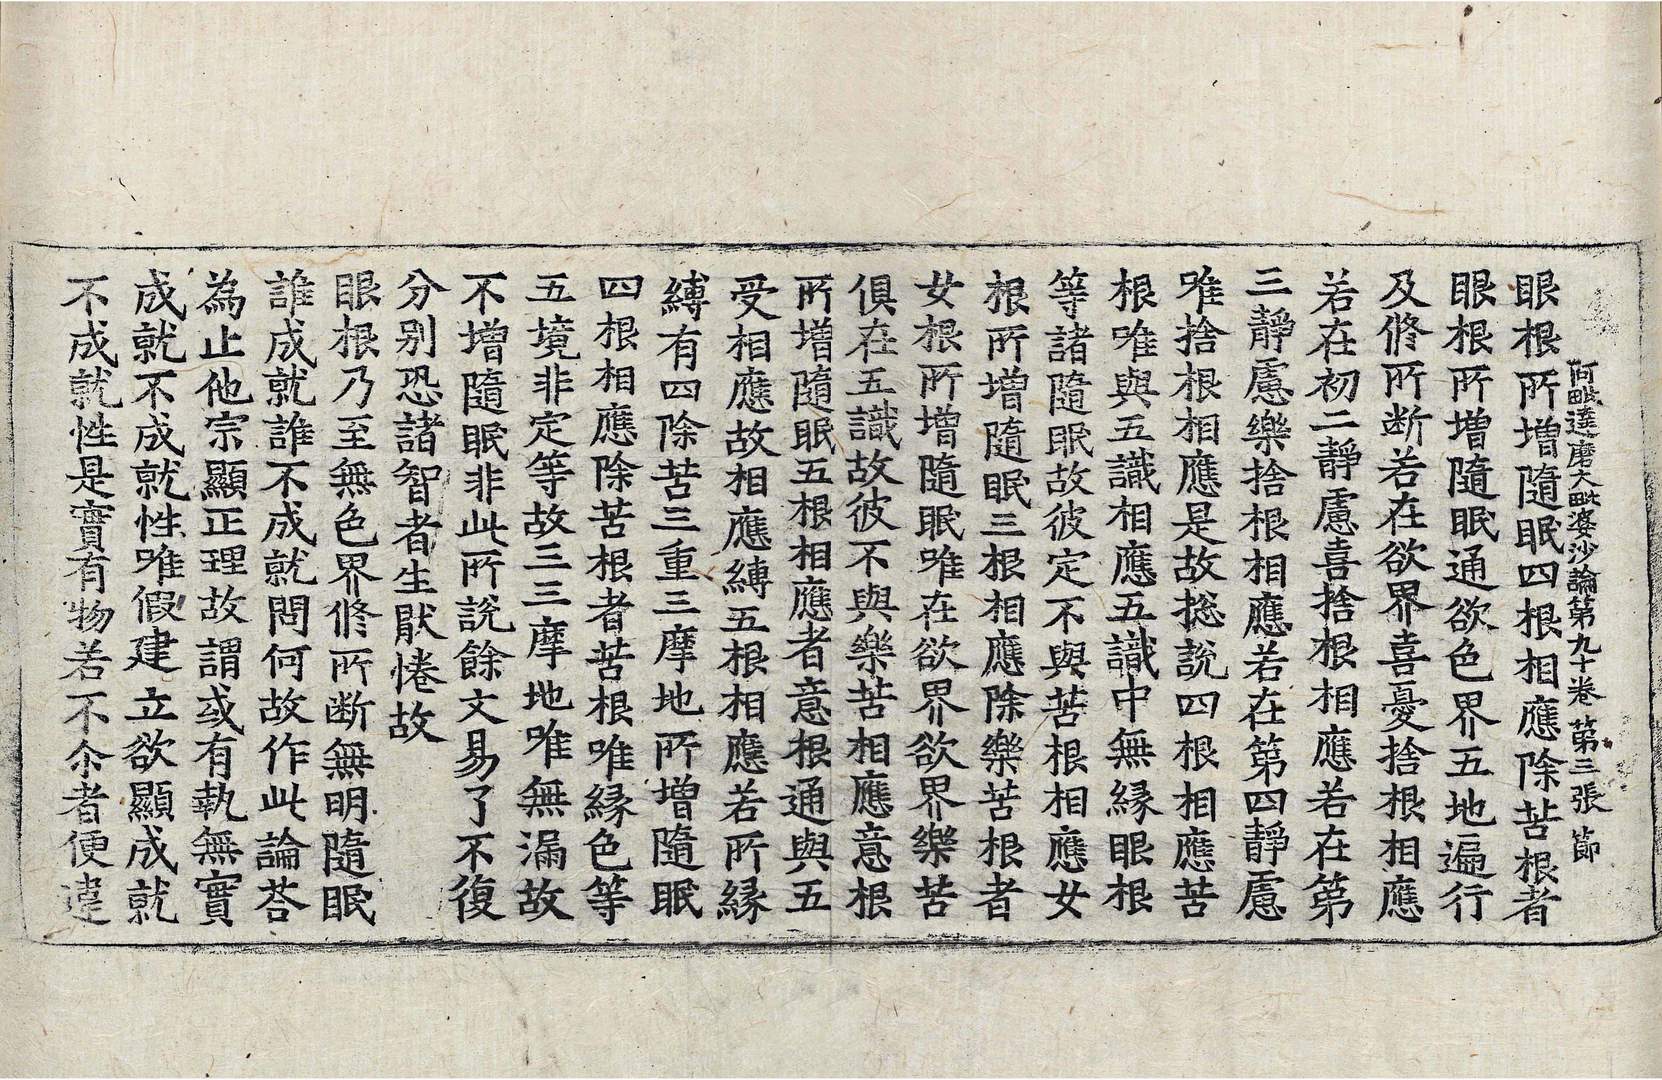 阿毗達磨大毗婆沙論第九十卷 第三張 節
眼根所增隨眠四根相應除苦根者
眼根所增隨眠通欲色界五地遍行
及修所断若在欲界喜憂捨根相應
若在初二靜慮喜捨根相應若在第
三靜慮樂捨根相應若在第四靜慮
唯捨根相應是故捴說四根相應苦
根唯與五識相應五識中無縁眼根
等諸隨眠故彼定不與苦根相應女
根所增隨眠三根相應除樂苦根者
女根所增隨眠唯在欲界欲界樂苦
俱在五識故彼不與樂苦相應意根
所增隨眠五根相應者意根通與五
受相應故相應縛五根相應若所縁
縛有四除苦三重三摩地所增隨眠
四根相應除苦根者苦根唯縁色等
五境非定等故三三摩地唯無漏故
不增隨眠非此所說餘文易了不復
分别恐諸智者生猒惓故
眼根乃至無色界修所断無明隨眠
誰成就誰不成就問何故作此論荅
為止他宗顯正理故謂或有執無實
成就不成就性唯假建立欲顯成就
不成就性是實有物若不尒者便違